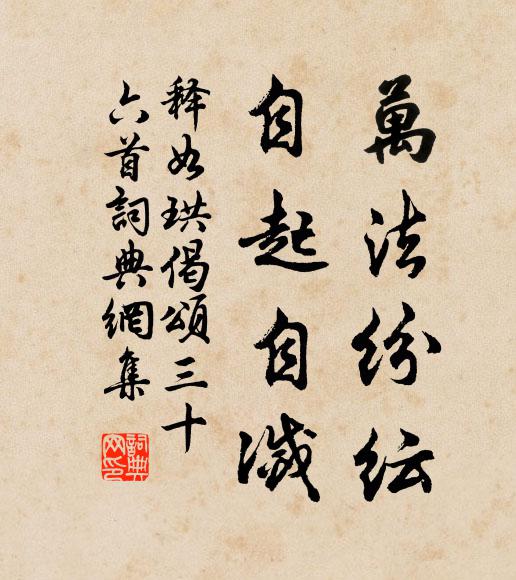 萬法紛紜
自起自滅
释如珙偈頌三十
六首詞典網集
詞典
网印